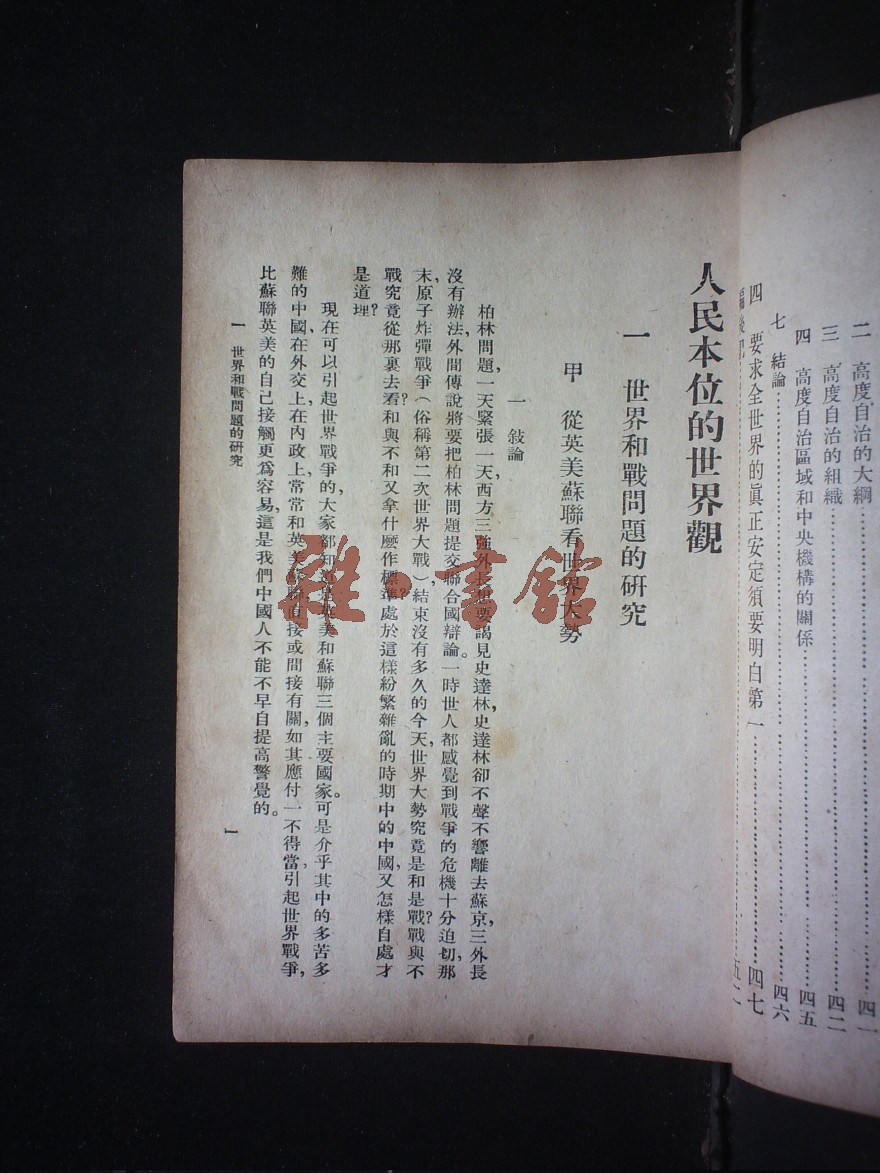 二 高度自治的大綱……四一
三 高度自治的組織……四二
四 高度自治區域和中央機構的關係……四五
七 結論……四六
四 要求全世界的眞正安定須要明白第一……四七
編後記……五二
人民本位的世界觀
一 世界和戰問題的研究
甲 從英美蘇聯看世界大勢
一 敍論
柏林問題,一天緊張一天,西方三強外長想要謁見史達林,史達林卻不聲不響離去蘇京,三外長
沒有辦法,外間傳說將要把柏林問題提交聯合國辯論。一時世人都感覺到戰爭的危機十分迫切,那
末,原子炸彈戰爭(俗稱第二次世界大戰)結束沒有多久的今天,世界大勢究竟是和是戰?戰與不
戰究竟從那裏去看?和與不和又拿什麼作標準?處於這樣紛繁雜亂的時期中的中國,又怎樣自處才
是道理?
現在可以引起世界戰爭的,大家都知道是英美和蘇聯三個主要國家。可是介乎其中的多苦多
難的中國,在外交上,在內政上,常常和英美蘇聯直接或間接有關,如其應付一不得當,引起世界戰爭,
比蘇聯英美的自己接觸更爲容易,這是我們中國人不能不早自提高警覺的。
一 世界和戰問題的研究
一
雜·書館